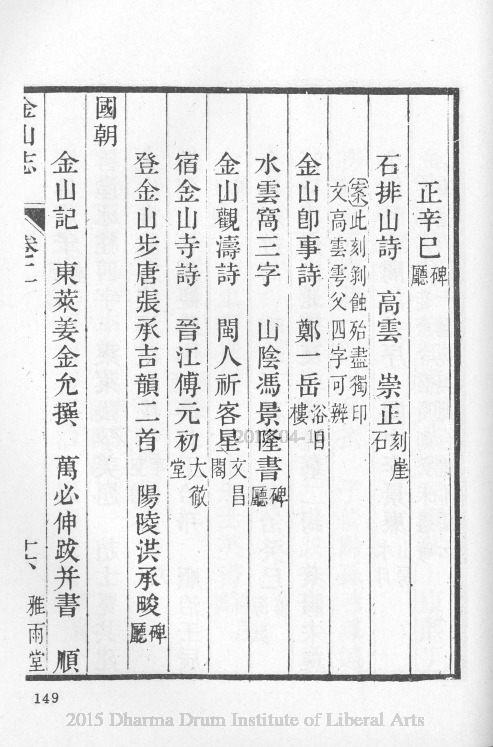 正辛巳碑廳
石排山詩　高雲　崇正刻崖石
案此刻剝蝕殆盡獨印
文高雲雩父四字可辨
金山卽事詩　鄭一岳浴日樓
水雲窩三字　山陰馮景隆書碑廳
金山觀濤詩　閩人祈客星文昌閣
宿金山寺詩　晉江傅元初大徹堂
登金山步唐張承吉韻二首　陽陵洪承畯碑廳
國朝
金山記　東萊姜金允撰　萬必伸跋并書　順
金山志　卷二　雅雨堂
149
2015 Dharma Drum Institute of Liberal Arts